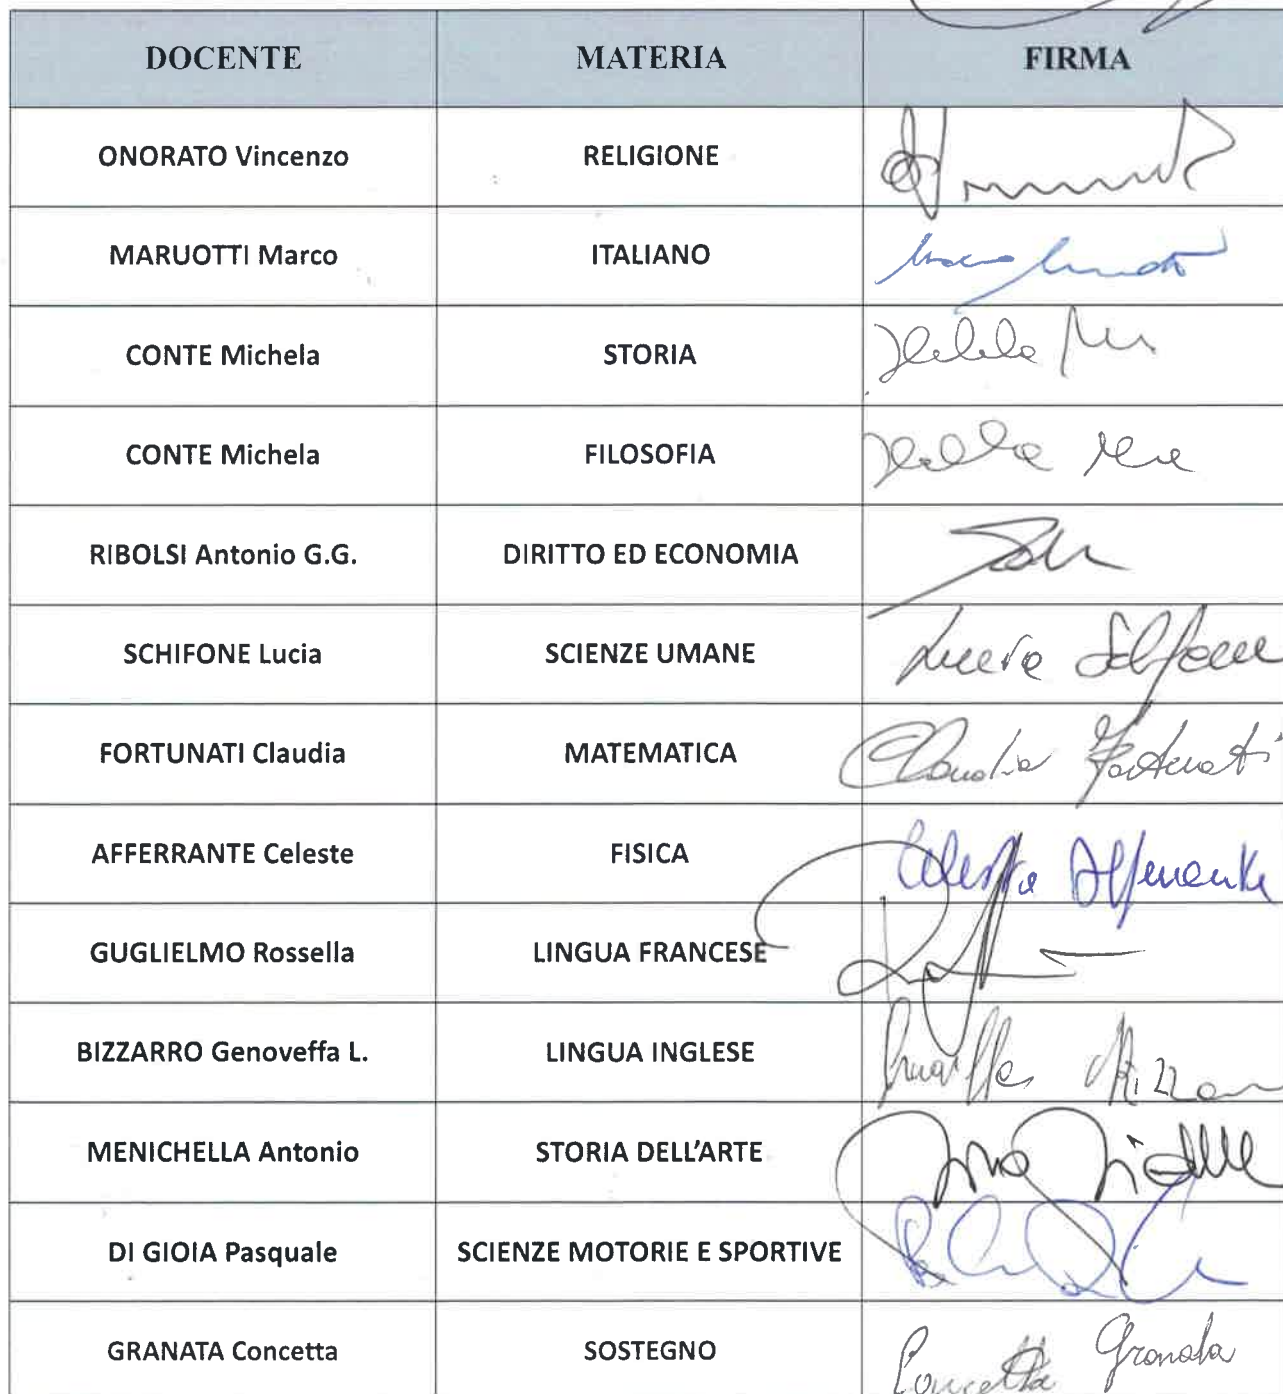 DOCENTE MATERIA FIRMA
ONORATO Vincenzo RELIGIONE
MARUOTTI Marco ITALIANO
CONTE Michela STORIA
CONTE Michela FILOSOFIA
RIBOLSI Antonio G.G. DIRITTO ED ECONOMIA
SCHIFONE Lucia SCIENZE UMANE Lucia Schifone
FORTUNATI Claudia MATEMATICA Claudia Fortunati
AFFERRANTE Celeste FISICA Celeste Afferrante
GUGLIELMO Rossella LINGUA FRANCESE
BIZZARRO Genoveffa L. LINGUA INGLESE
MENICHELLA Antonio STORIA DELL'ARTE
DI GIOIA Pasquale SCIENZE MOTORIE E SPORTIVE
GRANATA Concetta SOSTEGNO Concetta Granata